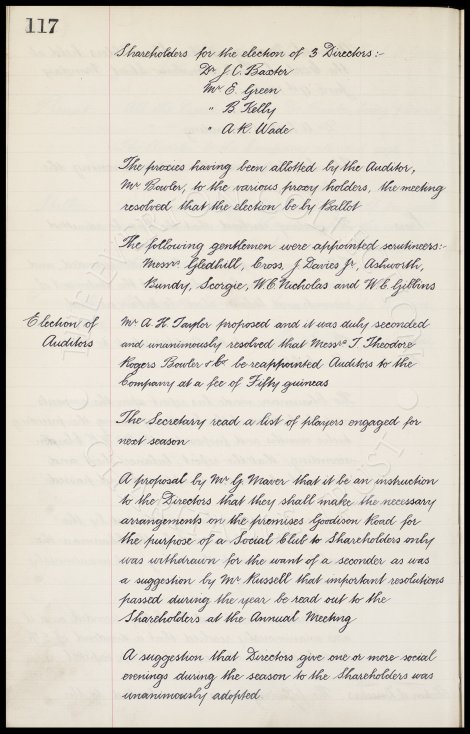 117
Shareholders for the election of 3 Directors :-
Dr J. C. Baxter
Mr E. Green
" B. Kelly
" A. R. Wade
The proxies having been allotted by the Auditor,
Mr Bowler, to the various proxy holders, the meeting
resolved that the election be by Ballot
The following gentlemen were appointed scrutineers:-
Messrs Gledhill, Cross, J Davies Jr, Ashworth,
Bundy, Scorgie, W. C. Nicholas and W. E. Gibbins
Election of
Auditors
Mr A. H. Taylor proposed and it was duly seconded
and unanimously resolved that Messrs T. Theodore
Rogers Bowler & Co be reappointed Auditors to the
Company at a fee of Fifty guineas
The Secretary read a list of players engaged for
next season
A proposal by Mr G Maver that it be an instruction
to the Directors that they shall make the necessary
arrangements on the premises Goodison Road for
the purpose of a Social Club to Shareholders only
was withdrawn for the want of a seconder as was
a suggestion by Mr Russell that important resolutions
passed during the year be read out to the
Shareholders at the Annual Meeting
A suggestion that Directors give one or more social
evenings during the season to the Shareholders was
unanimously adopted